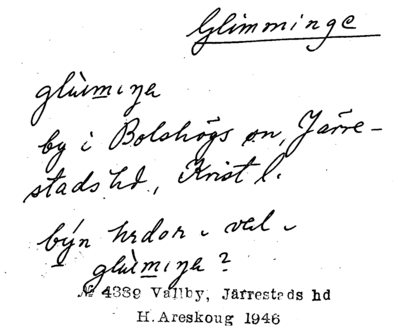 Glimminge
glùmıŋa
by i Bolshögs sn, Järre-
stads hd, Krist l.
býn hrdor i vel i
glùmıŋa?
№ 4339 Vallby, Järrestads hd
H. Areskoug 1946